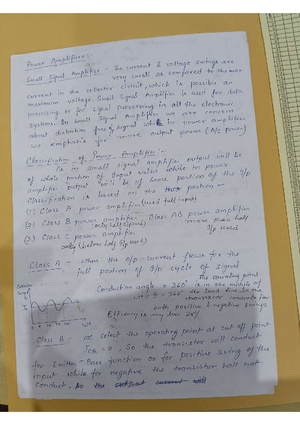 Power Amplifiers:-
Small Signal Amplifier - The current & voltage swings are
very small as compared to the max
current in the collector circuit, which is possible an
maximum voltage. Small Signal Amplifier is used for data
processing or for signal processing in all the electronic
systems. In Small Signal Amplifier we are concern
about distortion free signal while in power amplifier
we emphasis for more output power (AC power)
Classification of Power Amplifier:-
In small signal amplifier output will be
of whole portion of input value while in power
amplifier output will be of some portion of the i/p
Classification is based on the portion -
(1) Class A power amplifier (used full input)
(2) Class B power amplifier Class AB power amplifier
(only half i/p used) more than half
(3) Class C power amplifier i/p used
only (below half i/p used)
Class A - When the o/p current flows for the
full portion of i/p cycle of signal
Conduction angle = 360° The operating point
is in the middle of
the load line
transistor conducts for
both positive & negative swings
Efficiency is very low
Class B - We select the operating point at cut off point
ICQ = 0. So the transistor will conduct
for Emitter-Base junction or for positive swing of the
input while for negative the transistor will not
conduct. So the current will